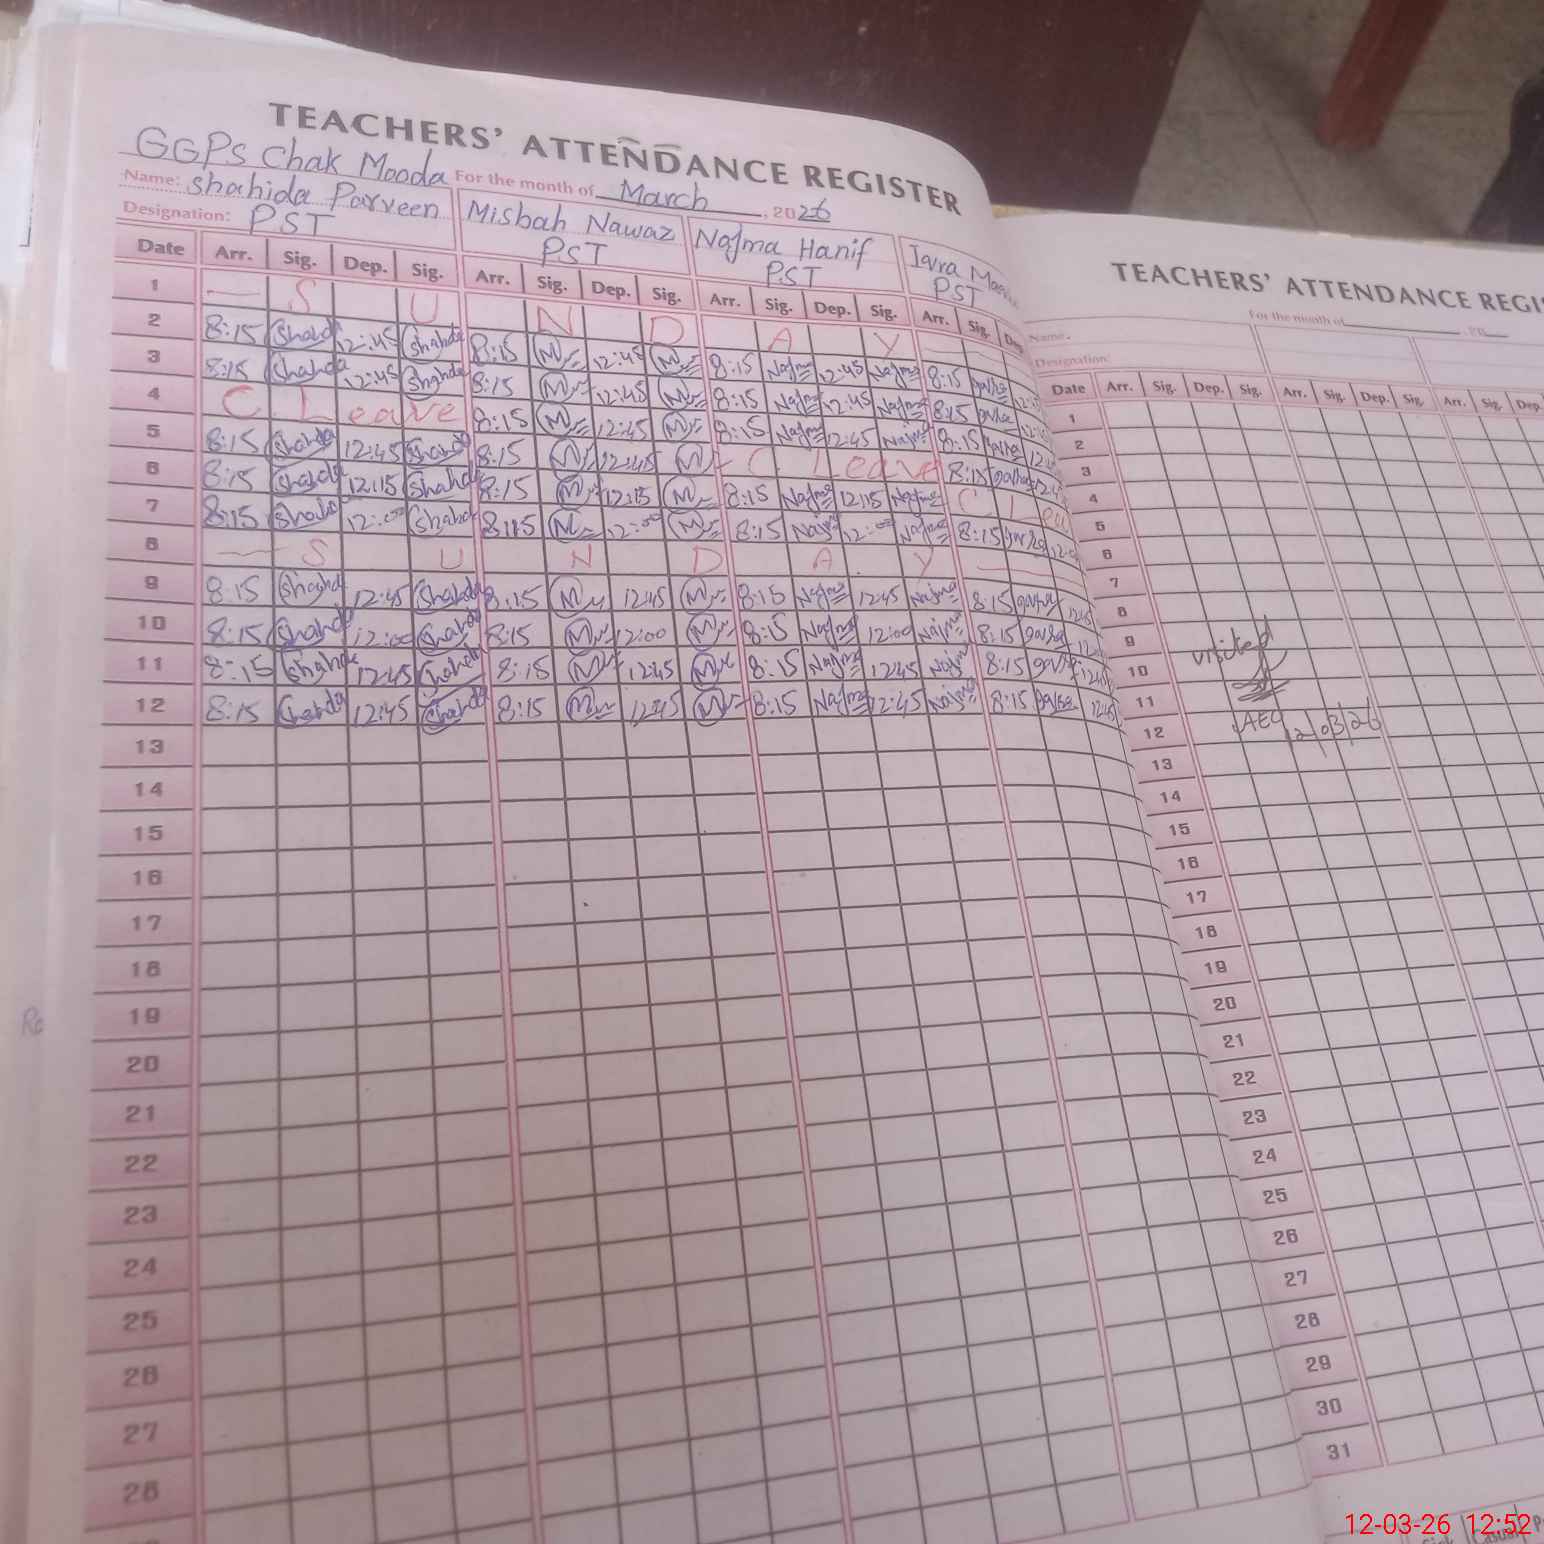 TEACHERS' ATTENDANCE REGISTER
GGPS Chak Mooda For the month of March, 2026
Name: Shahida Parveen Misbah Nawaz Najma Hanif Iqra
Designation: PST PST PST PST
Date Arr. Sig. Dep. Sig. Arr. Sig. Dep. Sig. Arr. Sig. Dep. Sig. Arr. Sig. Dep
1 — S U N D A Y
2 8:15 Shahda 12:45 Shahda 8:15 M 12:45 M 8:15 Najma 12:45 Najma 8:15
3 8:15 Shahda 12:45 Shahda 8:15 M 12:45 M 8:15 Najma 12:45 Najma 8:15
4 C Leave 8:15 M 12:45 M 8:15 Najma 12:45 Najma 8:15
5 8:15 Shahda 12:45 Shahda 8:15 M 12:45 M C Leave 8:15
6 8:15 Shahda 12:15 Shahda 8:15 M 12:15 M 8:15 Najma 12:15 Najma C L
7 8:15 Shahda 12:00 Shahda 8:15 M 12:00 M 8:15 Najma 12:00 Najma 8:15
8 — S U N D A Y —
9 8:15 Shahda 12:45 Shahda 8:15 M 12:45 M 8:15 Najma 12:45 Najma 8:15 12:45
10 8:15 Shahda 12:00 Shahda 8:15 M 12:00 M 8:15 Najma 12:00 Najma 8:15
11 8:15 Shahda 12:45 Shahda 8:15 M 12:45 M 8:15 Najma 12:45 Najma 8:15 12:45
12 8:15 Shahda 12:45 Shahda 8:15 M 12:45 M 8:15 Najma 12:45 Najma 8:15 12:45
13
14
15
16
17
18
19
20
21
22
23
24
25
26
27
28
TEACHERS' ATTENDANCE REGI
For the month of , 20
Name.
Designation:
Date Arr. Sig. Dep. Sig. Arr. Sig. Dep. Sig. Arr. Sig. Dep.
1
2
3
4
5
6
7
8
9 visited
10
11
12 AEO 12/03/26
13
14
15
16
17
18
19
20
21
22
23
24
25
26
27
28
29
30
31
Casual
12-03-26 12:52